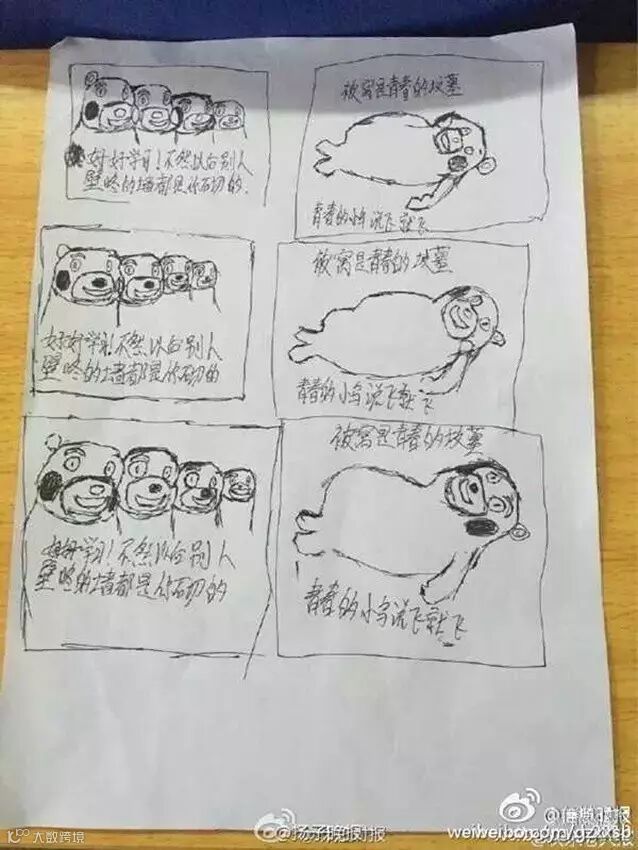 好好学习!不然以后别人
壁咚的墙都是你砌的.
被窝是青春的坟墓
青春的小鸟说飞就飞
好好学习!不然以后别人
壁咚的墙都是你砌的
被窝是青春的坟墓
青春的小鸟说飞就飞
好好学习!不然以后别人
壁咚的墙都是你砌的
被窝是青春的坟墓
青春的小鸟说飞就飞
大数跨境
@扬子晚报
@信息时报
weiweibo.com/gzxxsb